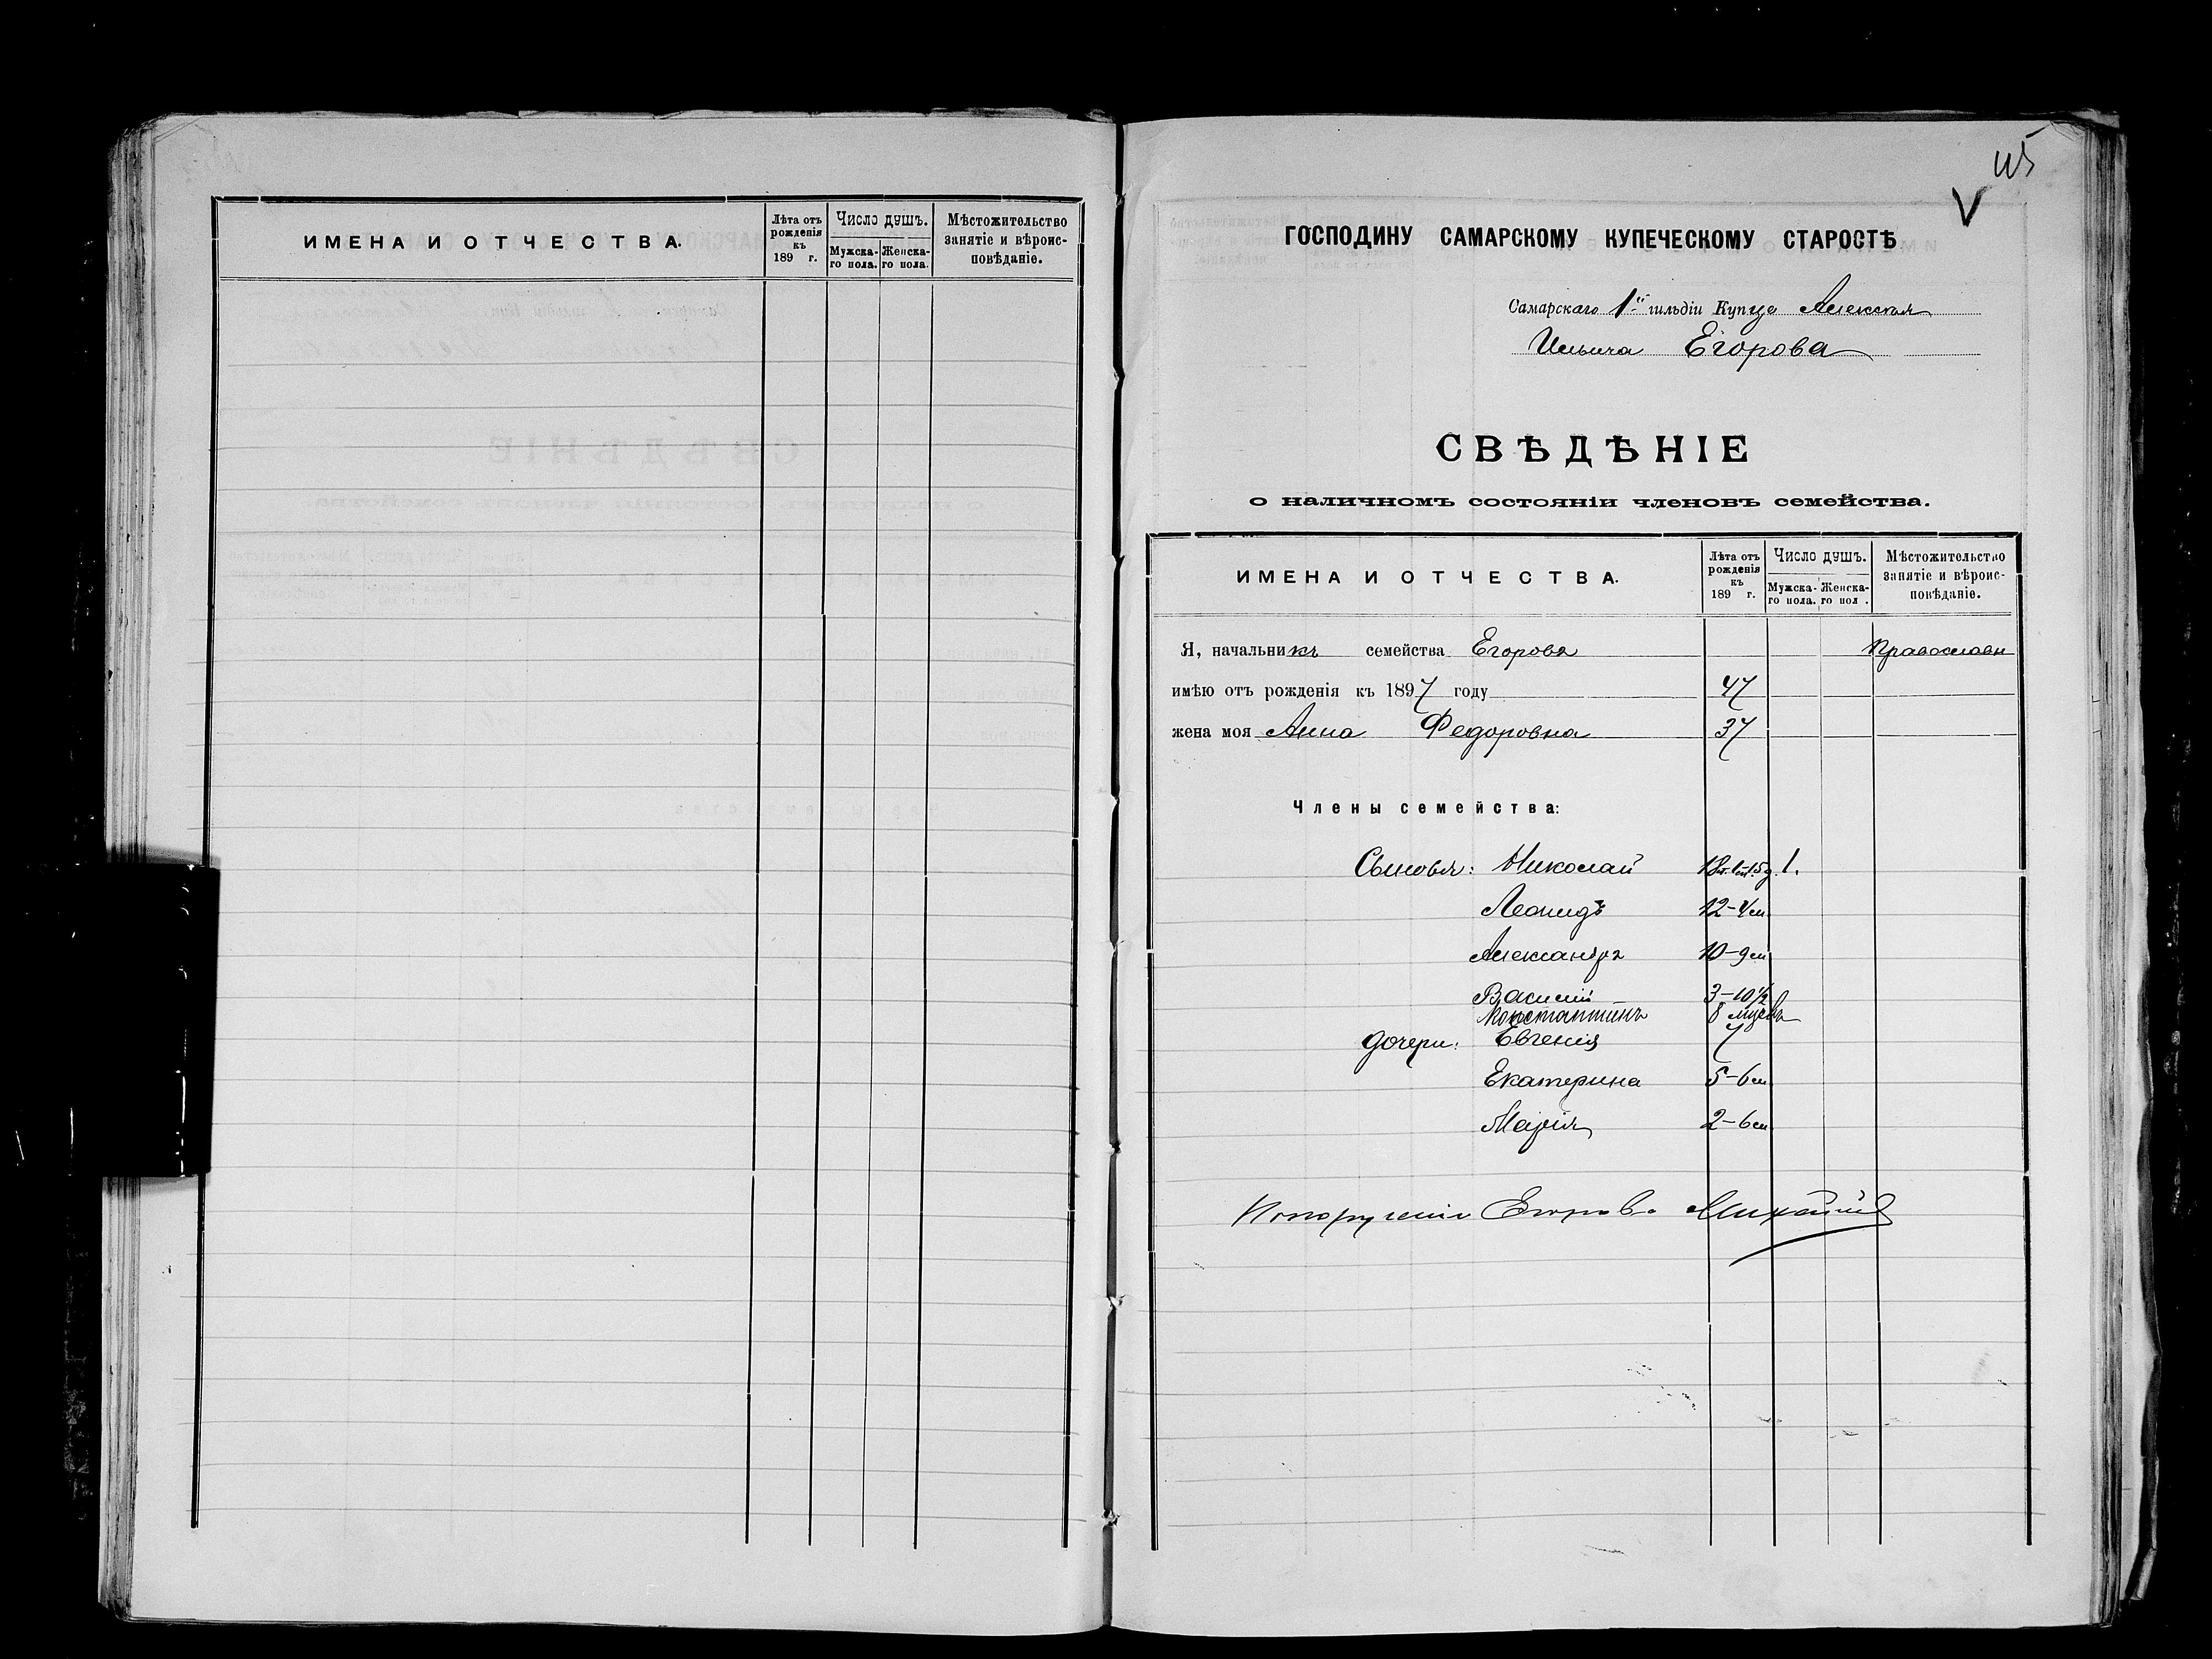 ИМЕНА И ОТЧЕСТВА.
Лѣта отъ рожденія къ 189 г.
Число душъ.
Мужска-го пола.
Женска-го пола
Мѣстожительство занятіе и вѣроис-повѣданіе.
115
V
ГОСПОДИНУ САМАРСКОМУ КУПЕЧЕСКОМУ СТАРОСТѢ
Самарскаго 1й гильдіи Купца Алексея
Ильича Егорова
СВѢДѢНІЕ
о наличномъ состояніи членовъ семейства.
ИМЕНА И ОТЧЕСТВА.
Лѣта отъ рожденія къ 189 г.
Число душъ.
Мужска-го пола.
Женска-го пол .
Мѣстожительство занятіе и вѣроис-повѣданіе.
Я, начальникъ семейства Егоровъ Православн
имѣю отъ рожденія къ 1897 году 47
жена моя Анна Федоровна 37
Члены семейства:
Сыновья: Николай 1.
Леонидъ 12-4м
Александръ 10-9м
Василій 3-10½
Константинъ 8 мцевъ
дочери: Евгенія 7
Екатерина 5-6м
Марія 2-6м
По порученію Егорова